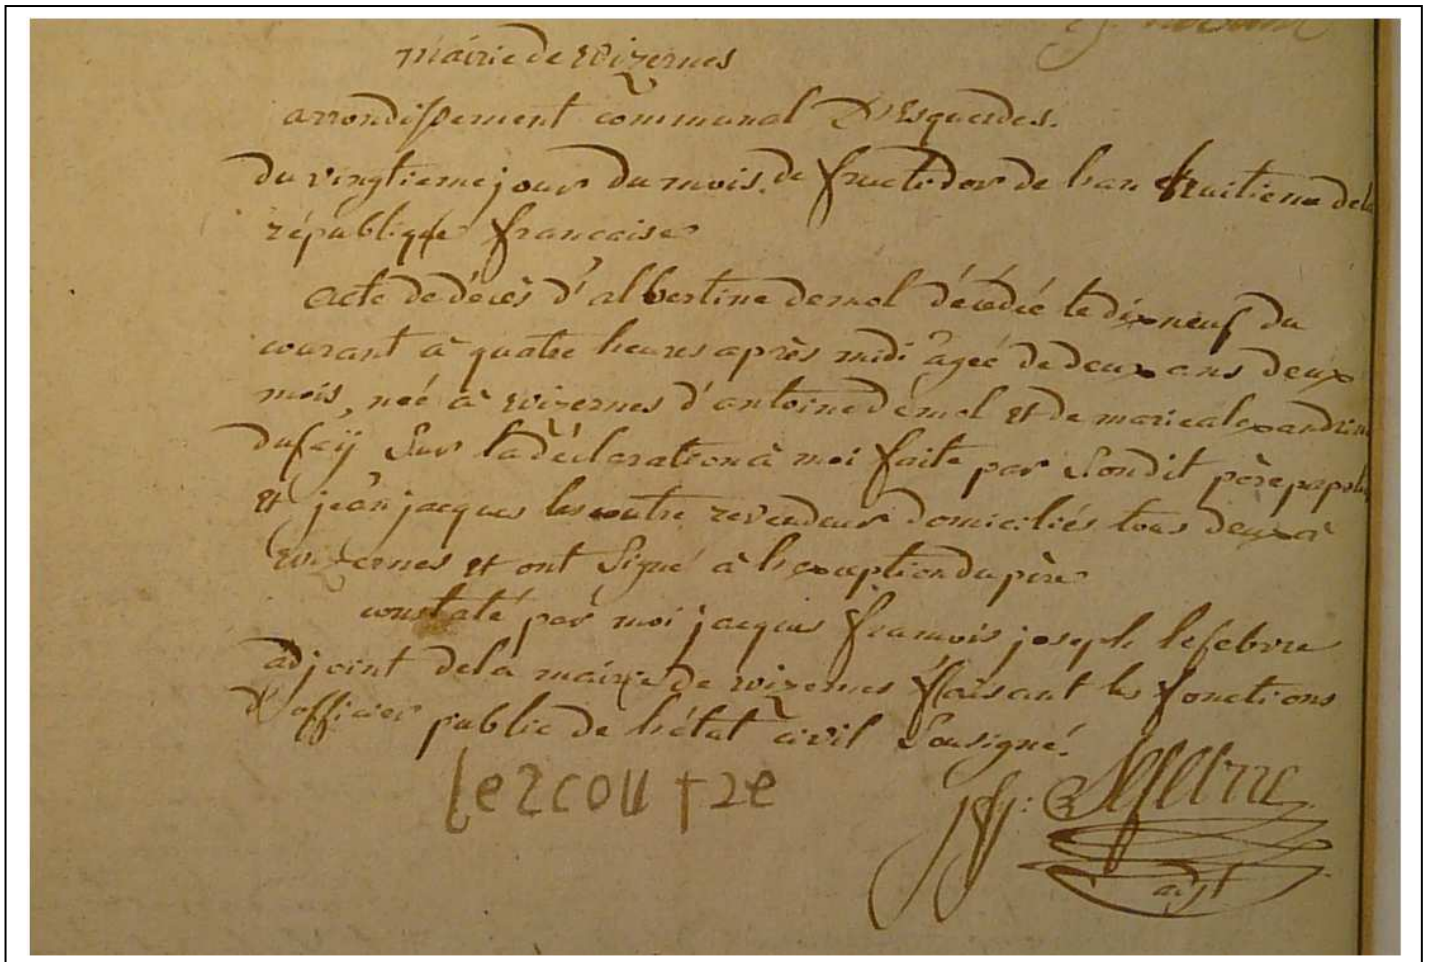 mairie de wizernes
arrondissement communal D'Esquerdes.
du vingtieme jour du mois de fructidor de l'an huitieme de la
république francaise
acte de décès d'albertine demol décédée le dix neuf du
courant à quatre heures après midi âgée de deux ans deux
mois, née à wizernes d'antoine demol et de marie alexandrine
dufaÿ Sur la déclaration à moi faite par Son dit père
et jean jacques lescoutre revendeur domiciliés tous deux à
wizernes et ont Signé à l'exception du père
constaté par moi jacques francois joseph lefebvre
adjoint de la mairie de wizernes faisant les fonctions
d'officier public de l'état civil Sousigné.
lezcoutre
jfj: Lefebvre
adjt